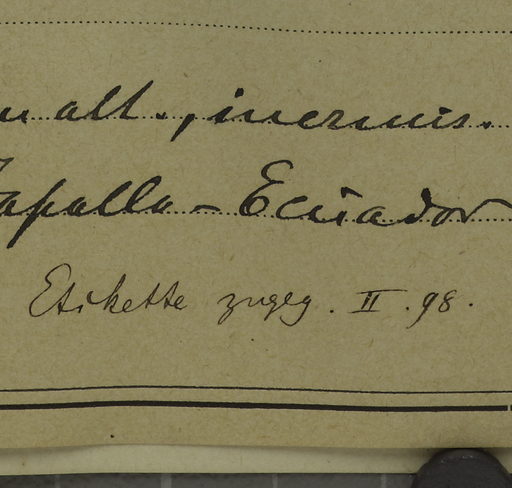 alt., inermis.
Capalla - Ecuador
Etikette zugeg. II. 98.